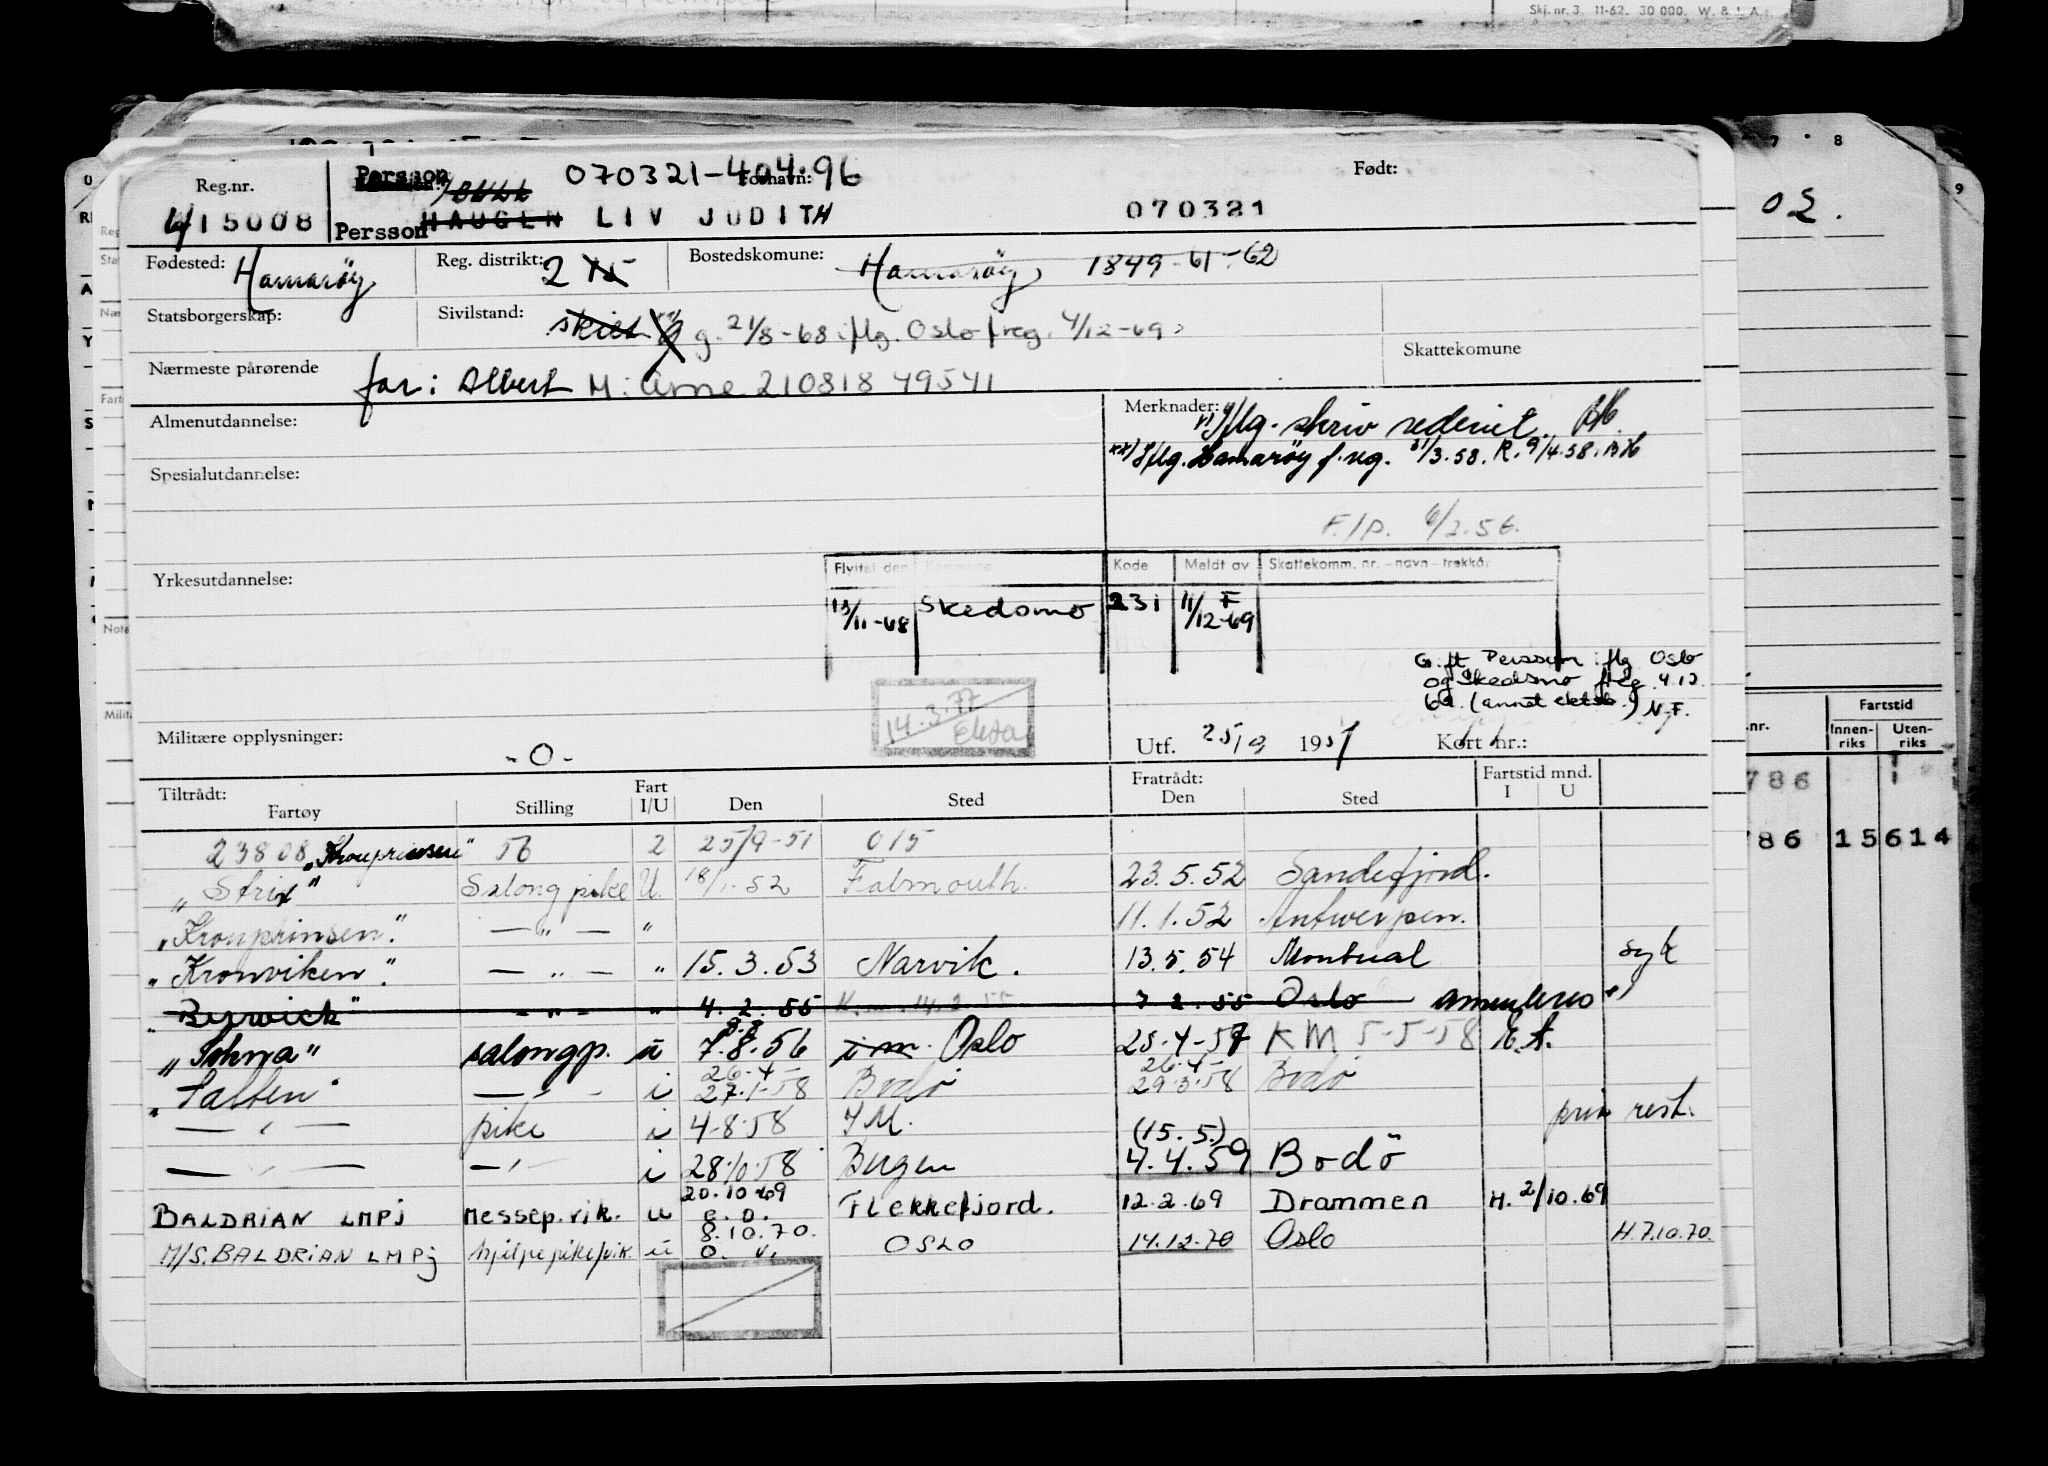 Skj. nr. 3 11-62. 30 000. W. & L A.s.
Reg.nr. Persson 070321-404.96 Fornavn: Født:
15008 Persson HAUGEN LIV JUDITH 070321
Fødested: Hamarøy Reg. distrikt: 2 Bostedskomune: Hamarøy 1849-61-62
Statsborgerskap: Sivilstand: skilt g. 21/8-68 iflg. Oslo f.reg. 4/12-69
Nærmeste pårørende far: Albert M: Arne 210818 49541 Skattekomune
Almenutdannelse: Merknader: x) Iflg. skriv rederiet. BK
xx) Iflg. Hamarøy f.reg. 31/3.58. R. 9/4.58. BK
Spesialutdannelse:
F/P. 6/2.56.
Yrkesutdannelse:
Flyttet den Kommune Kode Meldt av Skattekomm. nr. - navn - trekkår
13/11-68 Skedsmo 231 11/12-69 F
G. ft Persson iflg Oslo
og Skedsmo f.reg. 4.12.
69. (annet ektsk.) N.F.
14.3.77
Militære opplysninger: - O - Utf. 25/9 1951 Kort nr.: 1
Tiltrådt: Fratrådt: Fartstid mnd.
Fartøy Stilling Fart I/U Den Sted Den Sted I U
23808 „Kronprinsen" 56 2 25/9-51 015
„Strix" Salongpike U. 18/1-52 Falmouth. 23.5.52 Sandefjord.
„Kronprinsen". — „ — „ 11.1.52 Antwerpen.
„Kronviken". — „ — „ 15.3.53 Narvik. 13.5.54 Montreal syk
„Berwick" - „ - „ 4.2.55 7.2.55 Oslo annulleres
„Tohya" salongp. u 7.8.56 i m. Oslo 25-4-57 KM 5-5-58 E.A.
„Salten" — „ - i 26-4- 27.1-58 Bodø 26-4- 29.3.58 Bodø
— „ — pike i 4-8-58 YM. priv rest.
— „ — — „ - i 28.10.58 Bergen (15.5.) 4.4.59 Bodö
BALDRIAN LMPJ Messep.vik. u 20.10.69 e.o. Flekkefjord. 12.2.69 Drammen H. 2/10.69
M/S. BALDRIAN LMPj hjelpepike/vik. u 8.10.70. o. v. OSLO 14.12.70 Oslo H.7.10.70.
7 8
9
02.
nr. Fartstid
Innen-riks Uten-riks
786
786 15614